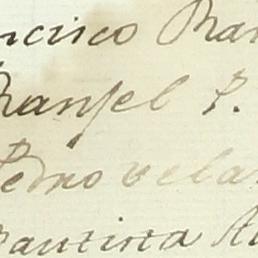 ncisco Ran
Ransel P.
Pedro vela
Bautista A